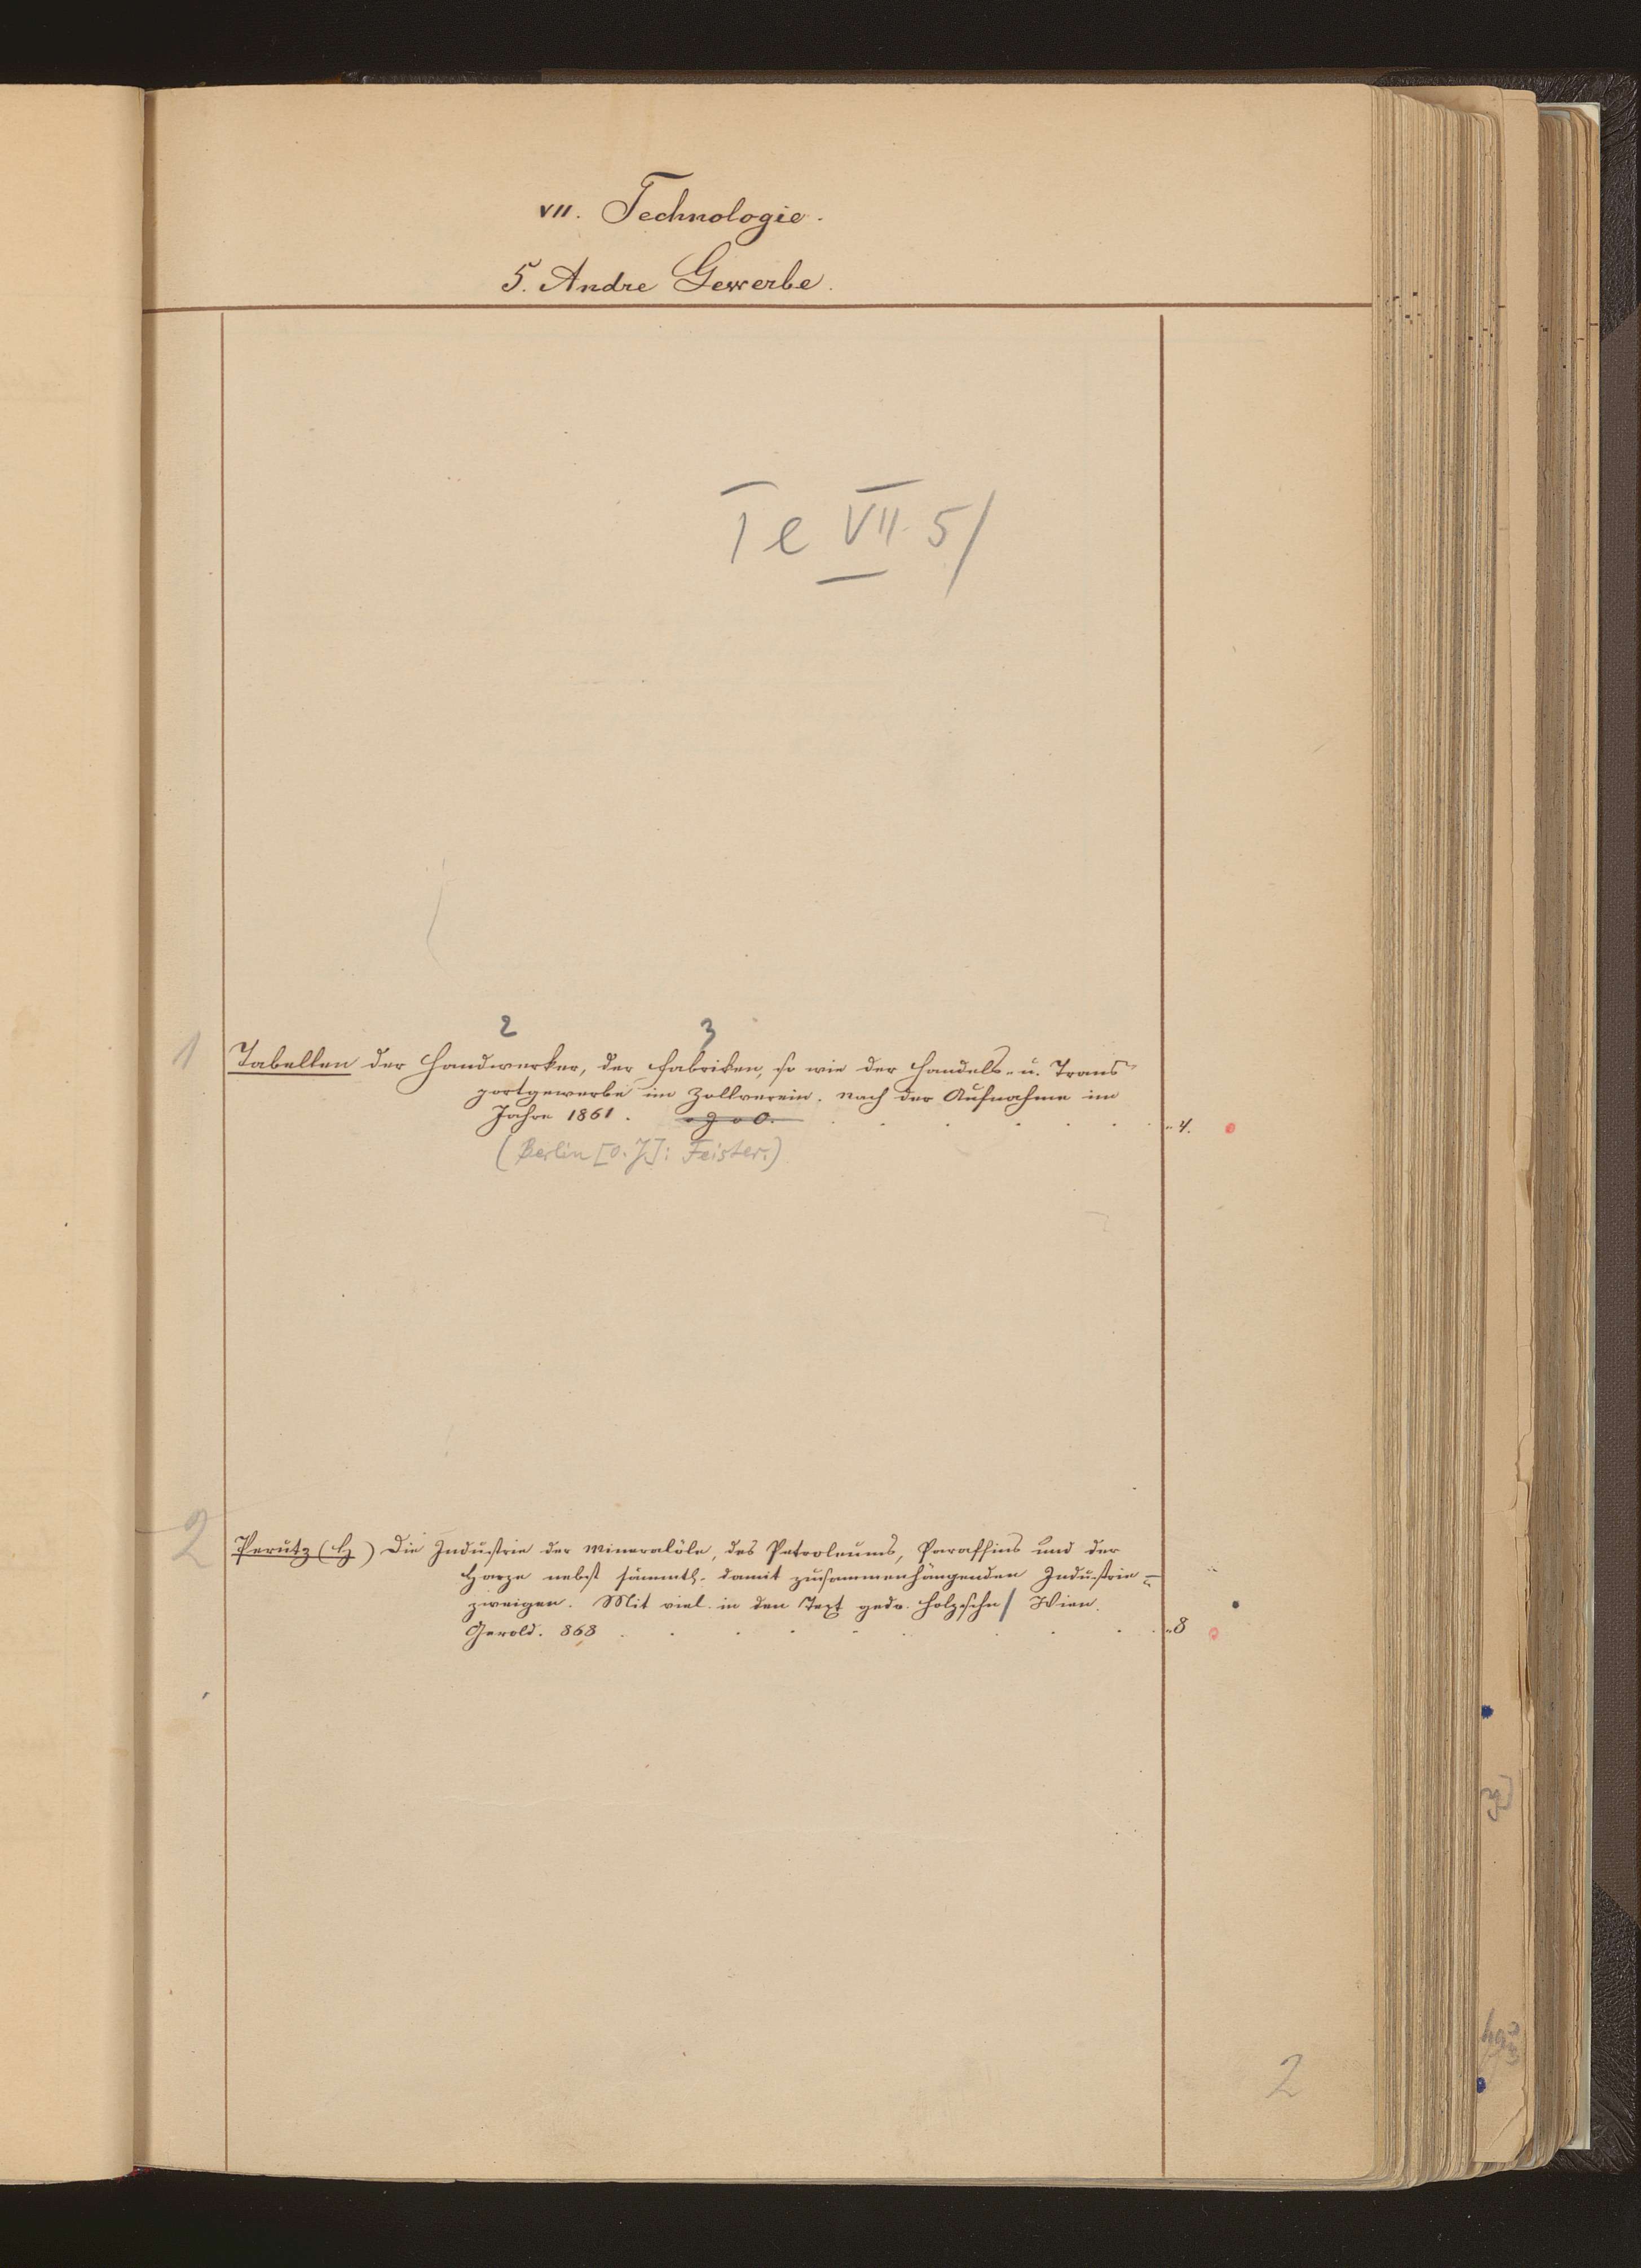 VII. Technologie.
5. Andre Gewerbe.
Te VII. 5/
2 3
1 Tabellen der Handwerker, der Fabriken, so wie der Handels- u. Trans-
portgewerbe im Zollverein. Nach der Aufnahme im
Jahre 1861. 4.
(Berlin [o. J.]: Feister.)
2 Perutz (H) Die Industrie der Mineralöle, des Petroleums, Paraffins und der
Harze nebst sämmtl. damit zusammenhängenden Industrie-
zweigen. Mit viel. in den Text gedr. Holzschn/ Wien.
Gerold. 868 8
2